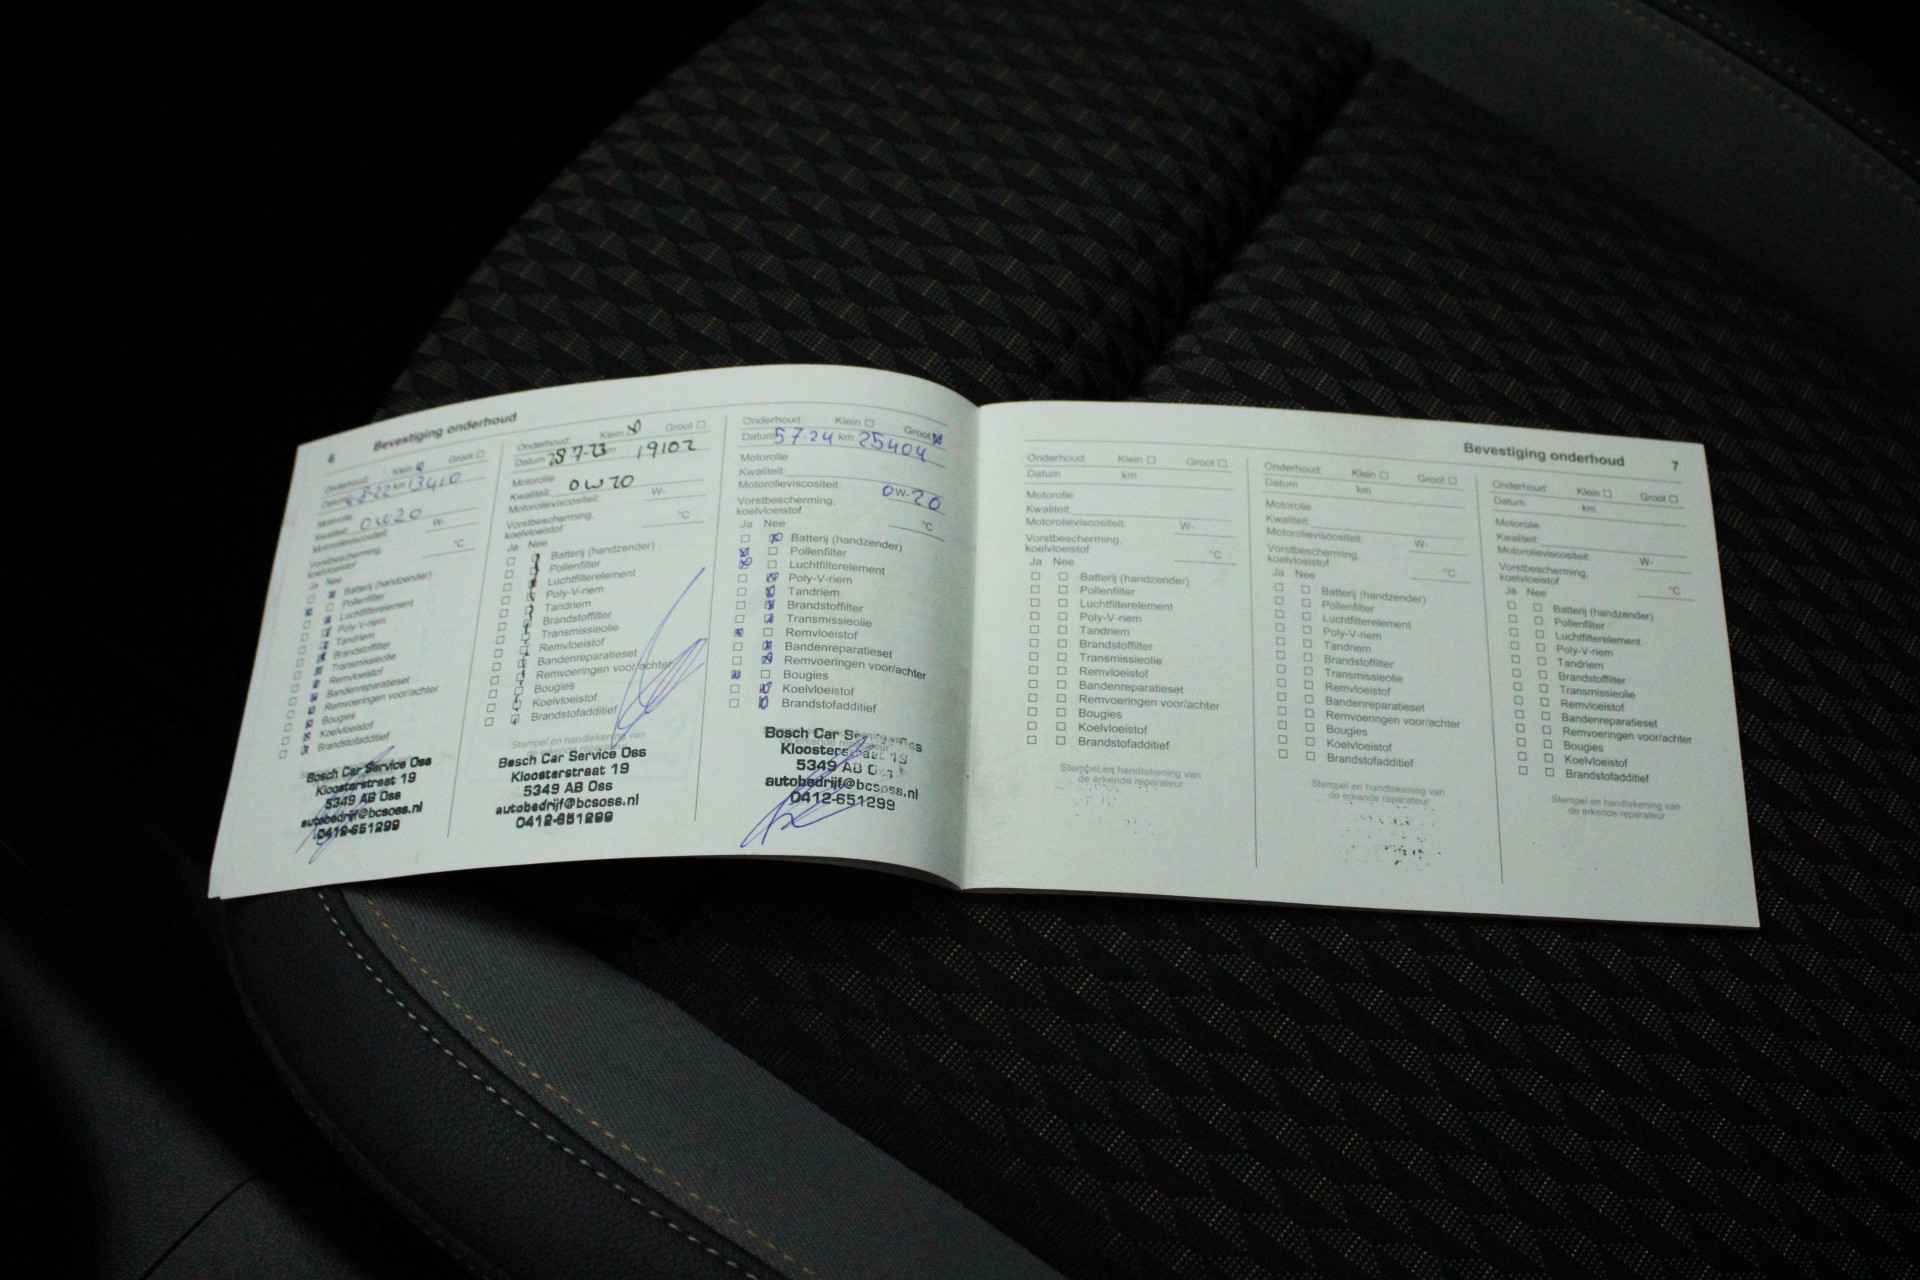 6 Bevestiging onderhoud
Onderhoud: Klein Groot
km 13410
Motorolie
Kwaliteit: 0W20
Motorolieviscositeit: W-
Vorstbescherming,
koelvloeistof °C
Ja Nee
Batterij (handzender)
Pollenfilter
Luchtfilterelement
Poly-V-riem
Tandriem
Brandstoffilter
Transmissieolie
Remvloeistof
Bandenreparatieset
Remvoeringen voor/achter
Bougies
Koelvloeistof
Brandstofadditief
Bosch Car Service Oss
Kloosterstraat 19
5349 AB Oss
autobedrijf@bcsoss.nl
0412-651299
Onderhoud: Klein Groot
Datum 28 7-23 km 19102
Motorolie
Kwaliteit: 0W20
Motorolieviscositeit: W-
Vorstbescherming,
koelvloeistof °C
Ja Nee
Batterij (handzender)
Pollenfilter
Luchtfilterelement
Poly-V-riem
Tandriem
Brandstoffilter
Transmissieolie
Remvloeistof
Bandenreparatieset
Remvoeringen voor/achter
Bougies
Koelvloeistof
Brandstofadditief
Stempel en handtekening van
Bosch Car Service Oss
Kloosterstraat 19
5349 AB Oss
autobedrijf@bcsoss.nl
0412-651299
Onderhoud: Klein Groot
Datum 5 7-24 km 25404
Motorolie
Kwaliteit:
Motorolieviscositeit: 0W-20
Vorstbescherming,
koelvloeistof °C
Ja Nee
Batterij (handzender)
Pollenfilter
Luchtfilterelement
Poly-V-riem
Tandriem
Brandstoffilter
Transmissieolie
Remvloeistof
Bandenreparatieset
Remvoeringen voor/achter
Bougies
Koelvloeistof
Brandstofadditief
Bosch Car Service Oss
Kloosterstraat 19
5349 AB Oss
autobedrijf@bcsoss.nl
0412-651299
Bevestiging onderhoud 7
Onderhoud: Klein Groot
Datum km
Motorolie
Kwaliteit:
Motorolieviscositeit: W-
Vorstbescherming,
koelvloeistof °C
Ja Nee
Batterij (handzender)
Pollenfilter
Luchtfilterelement
Poly-V-riem
Tandriem
Brandstoffilter
Transmissieolie
Remvloeistof
Bandenreparatieset
Remvoeringen voor/achter
Bougies
Koelvloeistof
Brandstofadditief
Stempel en handtekening van
de erkende reparateur
Onderhoud: Klein Groot
Datum km
Motorolie
Kwaliteit:
Motorolieviscositeit: W-
Vorstbescherming,
koelvloeistof °C
Ja Nee
Batterij (handzender)
Pollenfilter
Luchtfilterelement
Poly-V-riem
Tandriem
Brandstoffilter
Transmissieolie
Remvloeistof
Bandenreparatieset
Remvoeringen voor/achter
Bougies
Koelvloeistof
Brandstofadditief
Stempel en handtekening van
de erkende reparateur
Onderhoud: Klein Groot
Datum km
Motorolie
Kwaliteit:
Motorolieviscositeit: W-
Vorstbescherming,
koelvloeistof °C
Ja Nee
Batterij (handzender)
Pollenfilter
Luchtfilterelement
Poly-V-riem
Tandriem
Brandstoffilter
Transmissieolie
Remvloeistof
Bandenreparatieset
Remvoeringen voor/achter
Bougies
Koelvloeistof
Brandstofadditief
Stempel en handtekening van
de erkende reparateur